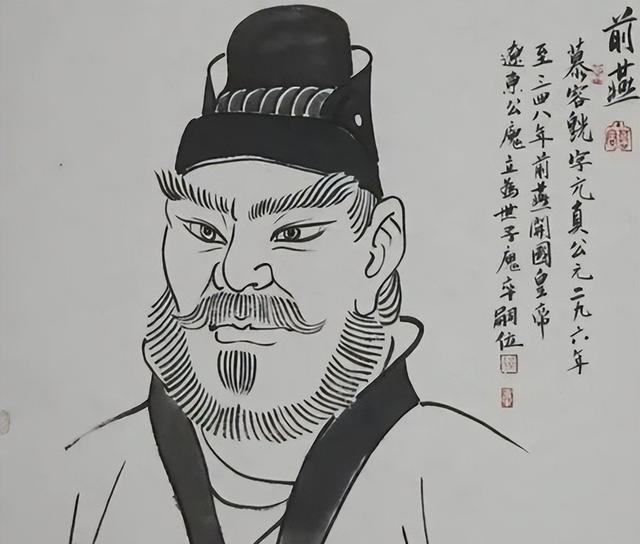 前燕
慕容皝字元真公元二九六年
至三四八年前燕開國皇帝
遼東公廆立為世子廆卒嗣位